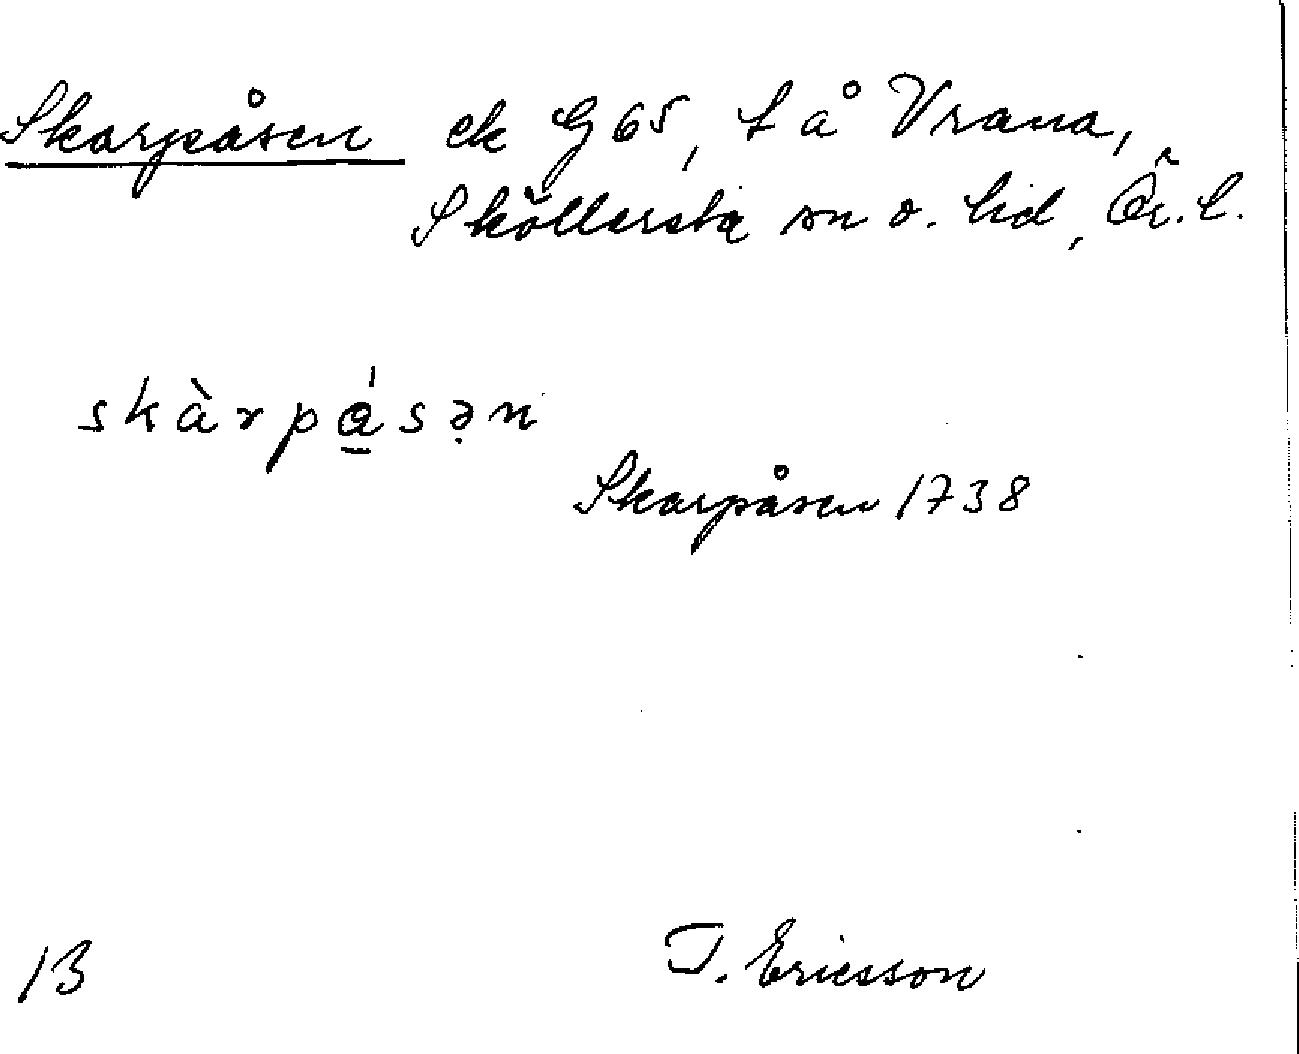 Skarpåsen ek G 65, t å Vrana,
Sköllersta sn o. hd, Ör. l.
skàrpásən
Skarpåsen 1738
13 T. Ericsson